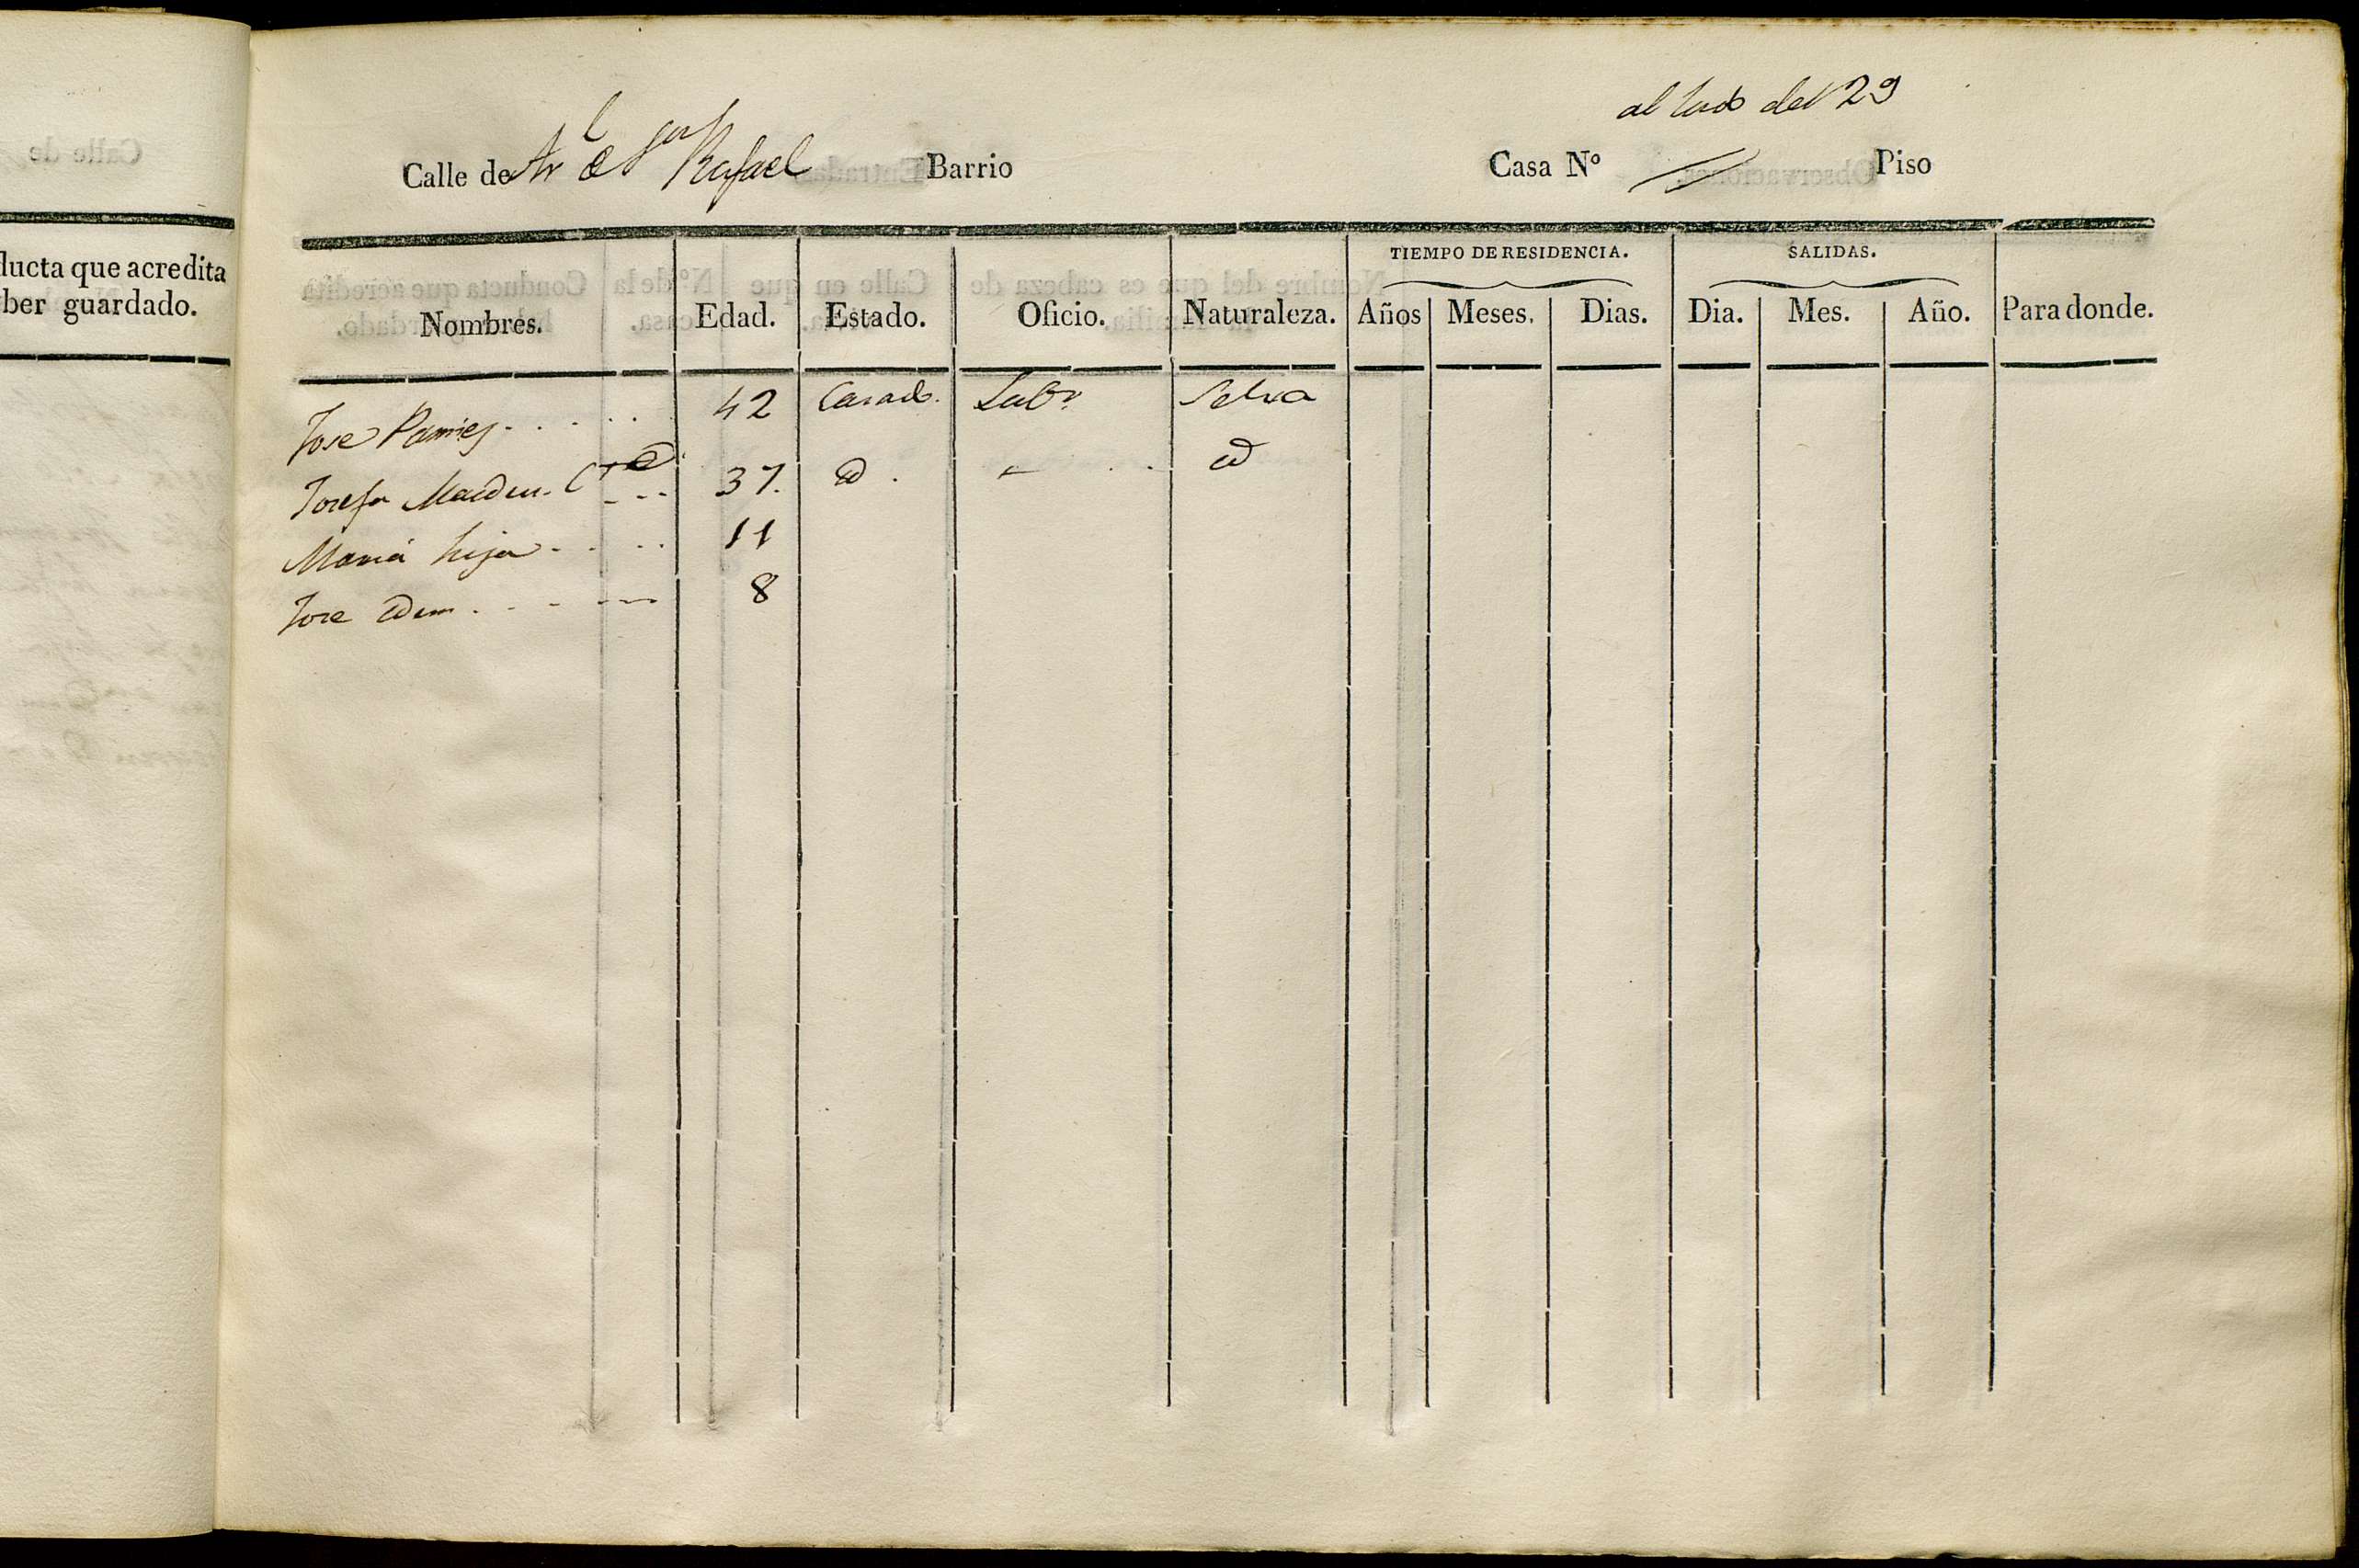 Calle de
ducta que acredita
ber guardado.
al lado del 29
Calle de Arl San Rafael Barrio Casa Nº Piso
TIEMPO DE RESIDENCIA. SALIDAS.
Nombres. Edad. Estado. Oficio. Naturaleza. Años Meses. Dias. Dia. Mes. Año. Para donde.
Jose Pamies 42 Casado. Labr. Selva
Josefa 37. id. id
Maria hija 11
Jose idem 8